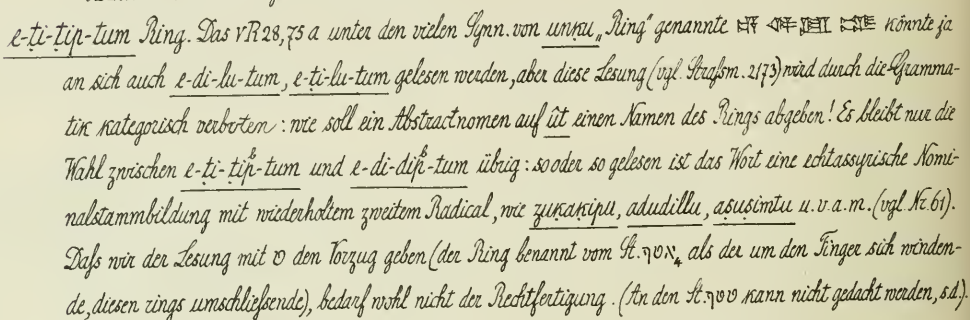 e-ṭi-ṭip-tum Ring. Das VR 28, 75 a unter den vielen Synn. von unḳu „Ring“ genannte könnte ja
an sich auch e-di-lu-tum, e-ṭi-lu-tum gelesen werden, aber diese Lesung (vgl. Straßm. 2173) wird durch die Gramma-
tik kategorisch verboten: wie soll ein Abstractnomen auf ût einen Namen des Rings abgeben! Es bleibt nur die
Wahl zwischen e-ṭi-ṭip-tum und e-di-dip-tum übrig: so oder so gelesen ist das Wort eine echtassyrische Nomi-
nalstammbildung mit wiederholtem zweitem Radical, wie zuḳaḳipu, adudillu, asusimtu u. v. a. m. (vgl. Nr. 61).
Daß wir der Lesung mit ט den Vorzug geben (der Ring benannt vom St. עטף als der um den Finger sich winden-
de, diesen rings umschließende), bedarf wohl nicht der Rechtfertigung. (An den St. kann nicht gedacht werden, s. d.).